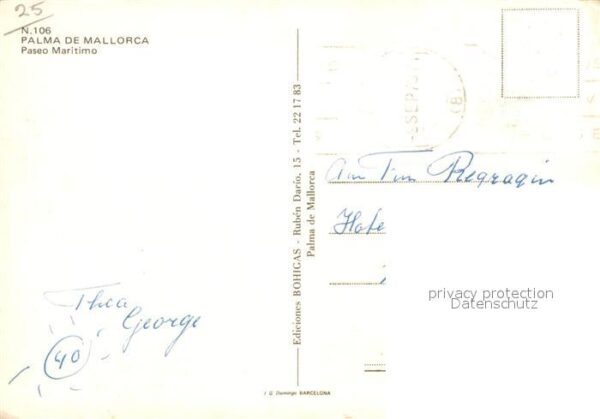 25
N.106
PALMA DE MALLORCA
Paseo Marítimo
Ediciones BOHIGAS - Rubén Darío, 15 - Tel. 22 17 83
Palma de Mallorca
SEP
Hote
Thea
George
40
privacy protection
Datenschutz
J. G. Domingo BARCELONA